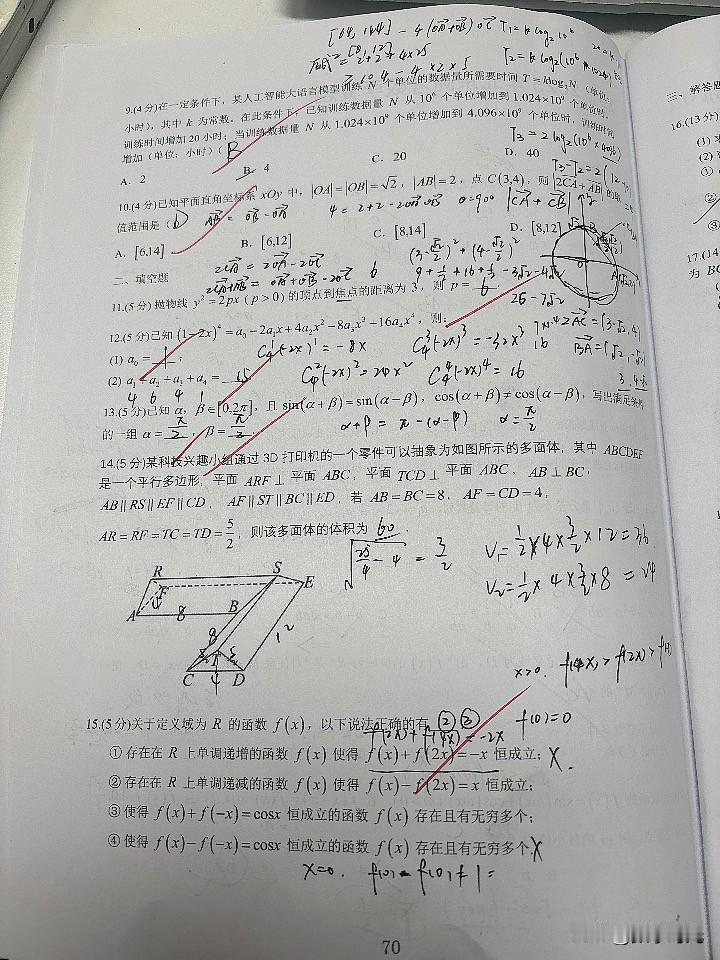 [64, 124] - 4(OA+OB)·OC T₁=k log₂10⁶
T₂=k log₂(10⁶
9.(4分)在一定条件下，某人工智能大语言模型训练 N 个单位的数据量所需要时间 T=klog₂N（单位:
小时），其中 k 为常数。在此条件下，已知训练数据量 N 从 10⁶ 个单位增加到 1.024×10⁹ 个单位时，
训练时间增加 20 小时；当训练数据量 N 从 1.024×10⁹ 个单位增加到 4.096×10⁹ 个单位时，训练时间
增加（单位：小时）( B
A. 2 B. 4 C. 20 D. 40
10.(4分)已知平面直角坐标系 xOy 中，|OA|=|OB|=√2，|AB|=2，点 C(3,4)，则 |2CA+AB| 的取
值范围是（D） AB=OB-OA 4=2+2-2OA·OB θ=90° |CA+CB|
A. [6,14] B. [6,12] C. [8,14] D. [8,12]
2CA=2OA-2OC
2CA+AB=OA+OB-2OC
二、填空题
25-7√2
11.(5分) 抛物线 y²=2px (p>0) 的顶点到焦点的距离为 3，则 p= 6 .
12.(5分)已知 (1-2x)⁴=a₀-2a₁x+4a₂x²-8a₃x³+16a₄x⁴，则:
(1) a₀= 1 . C₄¹(-2x)¹=-8x C₄³(-2x)³=-32x³
(2) a₁+a₂+a₃+a₄= 15 C₄²(-2x)²=24x² C₄⁴(-2x)⁴=16
4 6 4 1
13.(5分)已知 α，β∈[0,2π]，且 sin(α+β)=sin(α-β)，cos(α+β)≠cos(α-β)，写出满足条件
的一组 α= π/2，β= π/2. α+β=π-(α-β) α=π/2
14.(5分)某科技兴趣小组通过 3D 打印机的一个零件可以抽象为如图所示的多面体，其中 ABCDEF
是一个平行多边形，平面 ARF⊥平面 ABC，平面 TCD⊥平面 ABC，AB⊥BC，
AB∥RS∥EF∥CD，AF∥ST∥BC∥ED，若 AB=BC=8，AF=CD=4，
AR=RF=TC=TD=5/2，则该多面体的体积为 60 .
√(25/4-4)=3/2 V₁=1/2×4×3/2×12=36
V₂=1/2×4×3/2×8=24
R S E
F
A 8 B
8 12
T
C 4 D
x>0. f(4x)>f(2x)>f(x)
15.(5分)关于定义域为 R 的函数 f(x)，以下说法正确的有 ②③ f(0)=0
f(2x)+f(4x)=-2x
① 存在在 R 上单调递增的函数 f(x) 使得 f(x)+f(2x)=-x 恒成立; X.
② 存在在 R 上单调递减的函数 f(x) 使得 f(x)-f(2x)=x 恒成立;
③ 使得 f(x)+f(-x)=cosx 恒成立的函数 f(x) 存在且有无穷多个;
④ 使得 f(x)-f(-x)=cosx 恒成立的函数 f(x) 存在且有无穷多个. X
x=0. f(0)-f(0)≠1=
70
三、解答题
16.(13分)
17.(14
为 BC